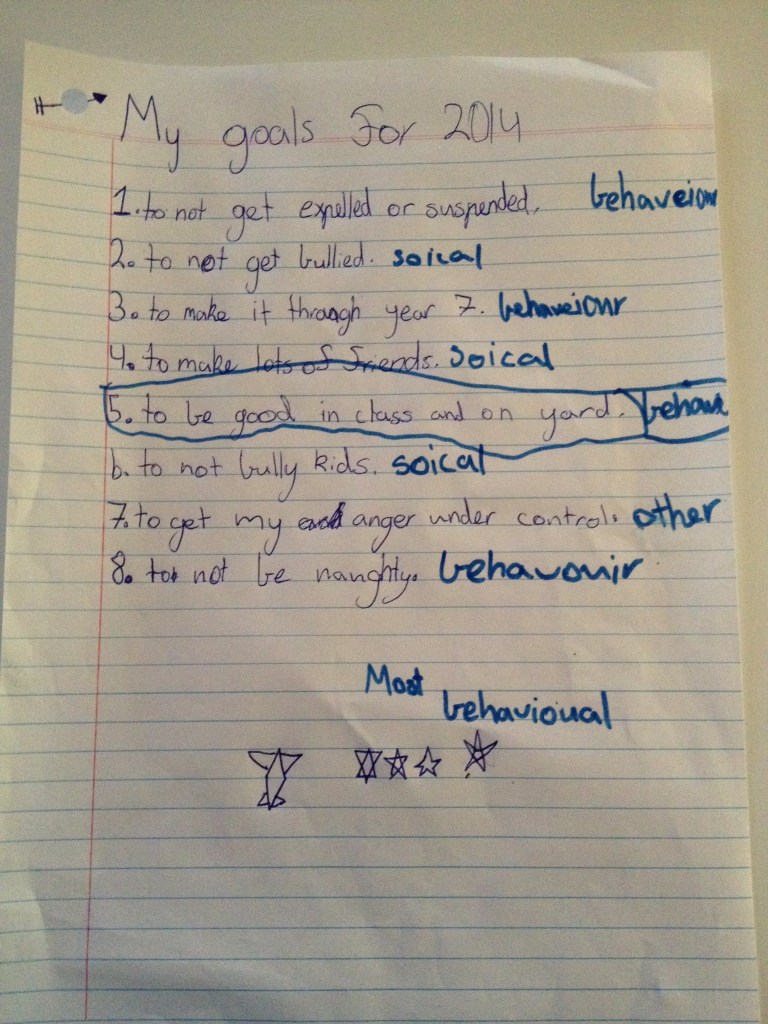 My goals for 2014
1. to not get expelled or suspended. behaveiour
2. to not get bullied. soical
3. to make it through year 7. behaveiour
4. to make lots of friends. soical
5. to be good in class and on yard. behave
6. to not bully kids. soical
7. to get my anger under control. other
8. to not be naughty. behavouir
Most
behavioual